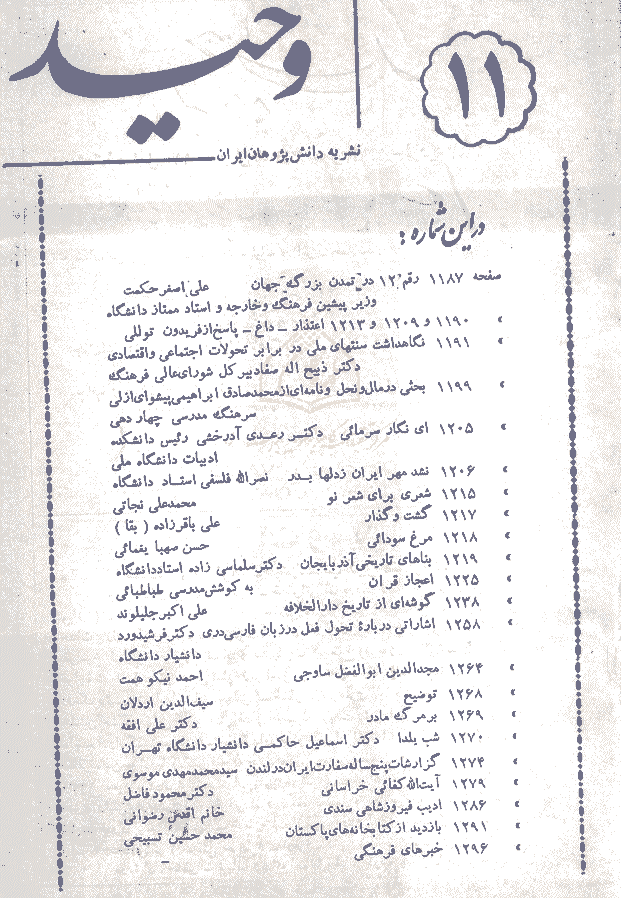 وحید
۱۱
نشریه دانش پژوهان ایران
در این شماره :
صفحه ۱۱۸۷ رقم «۱۲» در تمدن بزرگ جهان علی اصغر حکمت
وزیر پیشین فرهنگ و خارجه و استاد ممتاز دانشگاه
» ۱۱۹۰ و ۱۲۰۹ و ۱۲۱۳ اعتذار ـ داغ ـ پاسخ از فریدون توللی
» ۱۱۹۱ نگاهداشت سنتهای ملی در برابر تحولات اجتماعی و اقتصادی
دکتر ذبیح اله صفا دبیر کل شورای عالی فرهنگ
» ۱۱۹۹ بحثی در ملل و نحل و نامه‌ای از محمد صادق ابراهیمی پیشوای ازلی
سرهنگ مدرسی چهاردهی
» ۱۲۰۵ ای نگار سرمائی دکتر رعدی آدرخشی رئیس دانشکده
ادبیات دانشگاه ملی
» ۱۲۰۶ نقد مهر ایران ز دلها بدر نصرالله فلسفی استاد دانشگاه
» ۱۲۱۵ شعری برای شعر نو محمدعلی نجاتی
» ۱۲۱۷ گشت و گذار علی باقرزاده ( بقا )
» ۱۲۱۸ مرغ سودائی حسن صهبا یغمائی
» ۱۲۱۹ بناهای تاریخی آذربایجان دکتر سلماسی زاده استاد دانشگاه
» ۱۲۲۵ اعجاز قران به کوشش مدرسی طباطبائی
» ۱۲۳۸ گوشه‌ای از تاریخ دارالخلافه علی اکبر جلیلوند
» ۱۲۵۸ اشاراتی دربارهٔ تحول فعل در زبان فارسی دری دکتر فرشیدورد
دانشیار دانشگاه
» ۱۲۶۴ مجدالدین ابوالفضل ساوجی احمد نیکو همت
» ۱۲۶۸ توضیح سیف‌الدین اردلان
» ۱۲۶۹ بر مرگ مادر دکتر علی افقه
» ۱۲۷۰ شب یلدا دکتر اسماعیل حاکمی دانشیار دانشگاه تهران
» ۱۲۷۴ گزارشات پنج ساله سفارت ایران در لندن سید محمد مهدی موسوی
» ۱۲۷۹ آیت‌الله کفائی خراسانی دکتر محمود فاضل
» ۱۲۸۶ ادیب فیروزشاهی سندی خانم اقدس رضوانی
» ۱۲۹۱ بازدید از کتابخانه‌های پاکستان محمد حسین تسبیحی
» ۱۲۹۶ خبرهای فرهنگی